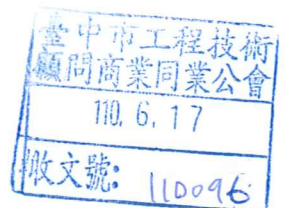 臺中市工程技術
顧問商業同業公會
110. 6. 17
收文號: 110096